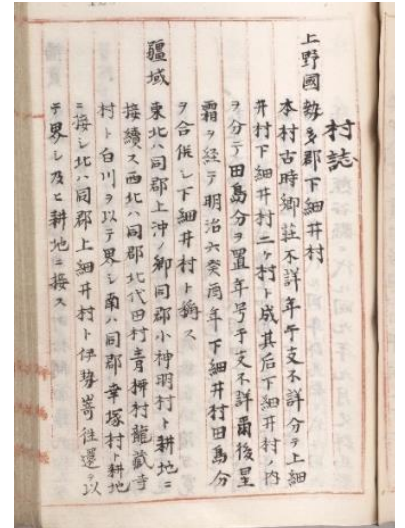 村誌
上野國勢多郡下細井村
本村古時郷荘不詳年干支不詳分テ上細
井村下細井村二ケ村ト成其后下細井村ノ内
ヲ分テ田島分ヲ置年号干支不詳爾後星
霜ヲ経テ明治六癸酉年下細井村田島分
ヲ合併シ下細井村ト稱ス
疆域
東北ハ同郡上沖ノ郷同郡小神明村ト耕地ニ
接續ス西北ハ同郡北代田村青柳村龍蔵寺
村ト白川ヲ以テ界シ南ハ同郡幸塚村ト耕地
ニ接シ北ハ同郡上細井村ト伊勢嵜往還ヲ以
テ界シ及ヒ耕地ニ接ス